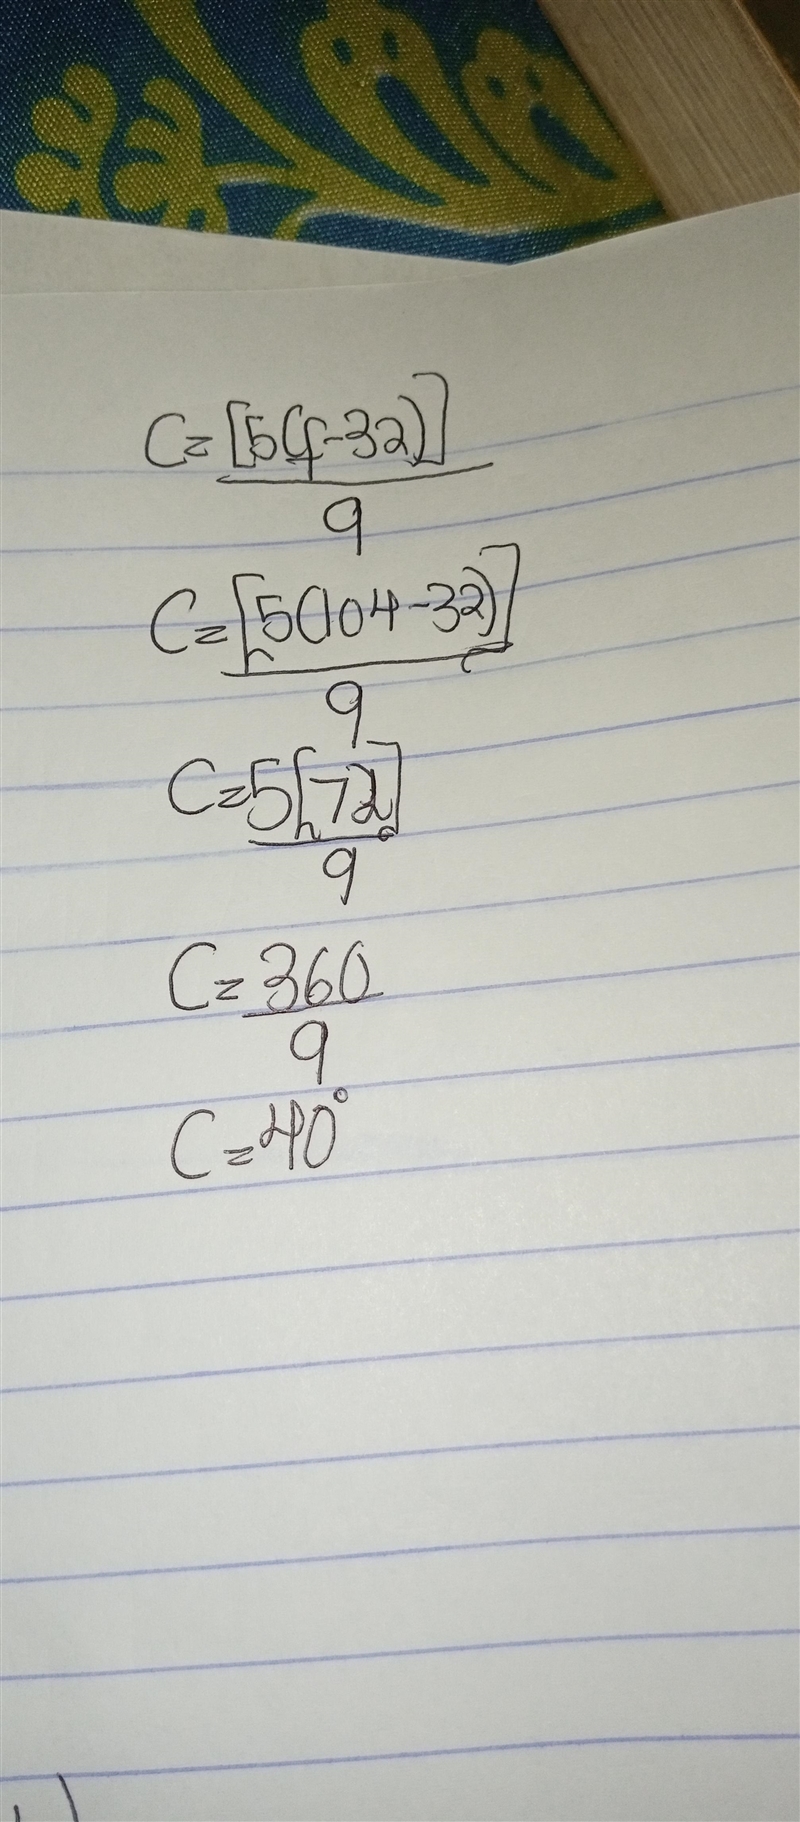 C=[5(f-32)]
9
C=[5(104-32)]
9
C=5[72]
9
C=360
9
C=40°
)